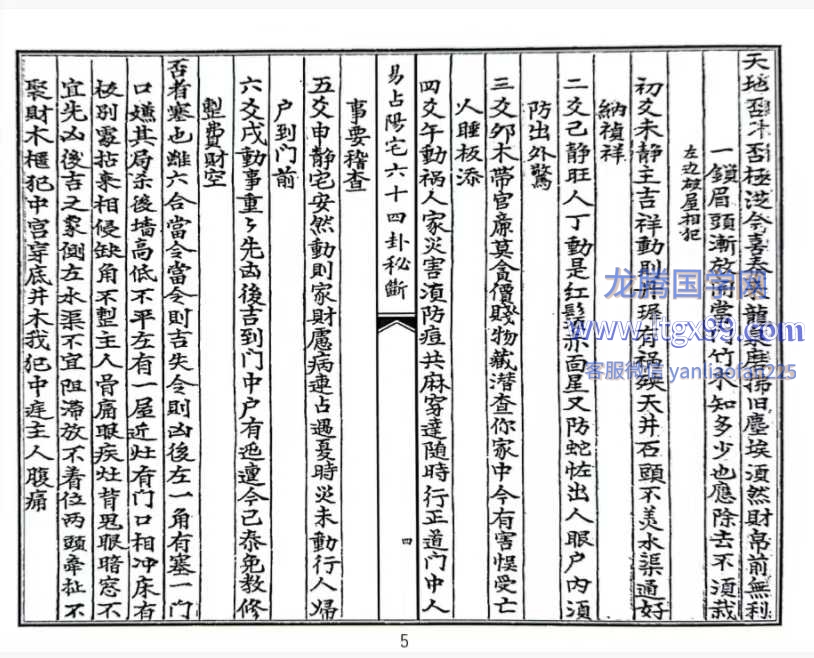 天地否卦否極泛今喜泰來龍來庭掃旧塵埃湏然財帛前無利
一鎖眉頭漸放開當門竹木知多少也應除去不湏栽
左边破屋相犯
初爻未静主吉祥動則有禍殃天井石頭不羙水渠通好
納禎祥
二爻己静旺人丁動是红髮赤面星又防蛇恠出人眼户内湏
防出外驚
三爻夘木帶官席莫貪價賤物藏潜查你家中今有害悮受亡
人睡板添
易占陽宅六十四卦秘斷
四
四爻午動祸人家災害湏防痘共麻穿達随時行正道门中人
事要稽查
五爻申静宅安然動則家財慮病連占遇憂時災未動行人歸
户到门前
六爻戌動事重〻先凶後吉到门中户有迍邅今已泰免教修
整費財空
否者塞也雖六合當令當令則吉失令則凶後左一角有塞一门
口嬚其局杀後墙高低不平左有一屋近灶有门口相冲床有
板别霎拈乘相侵缺角不整主人骨痛眼疾灶背鬼眼暗窓不
宜先凶後吉之象侧左水渠不宜阻滞放不着位两頭牵扯不
聚財木櫃犯中宫穿底井木我犯中庭主人腹痛
龙腾国学网
www.ltgx99.com
客服微信 yanliaofan225
5